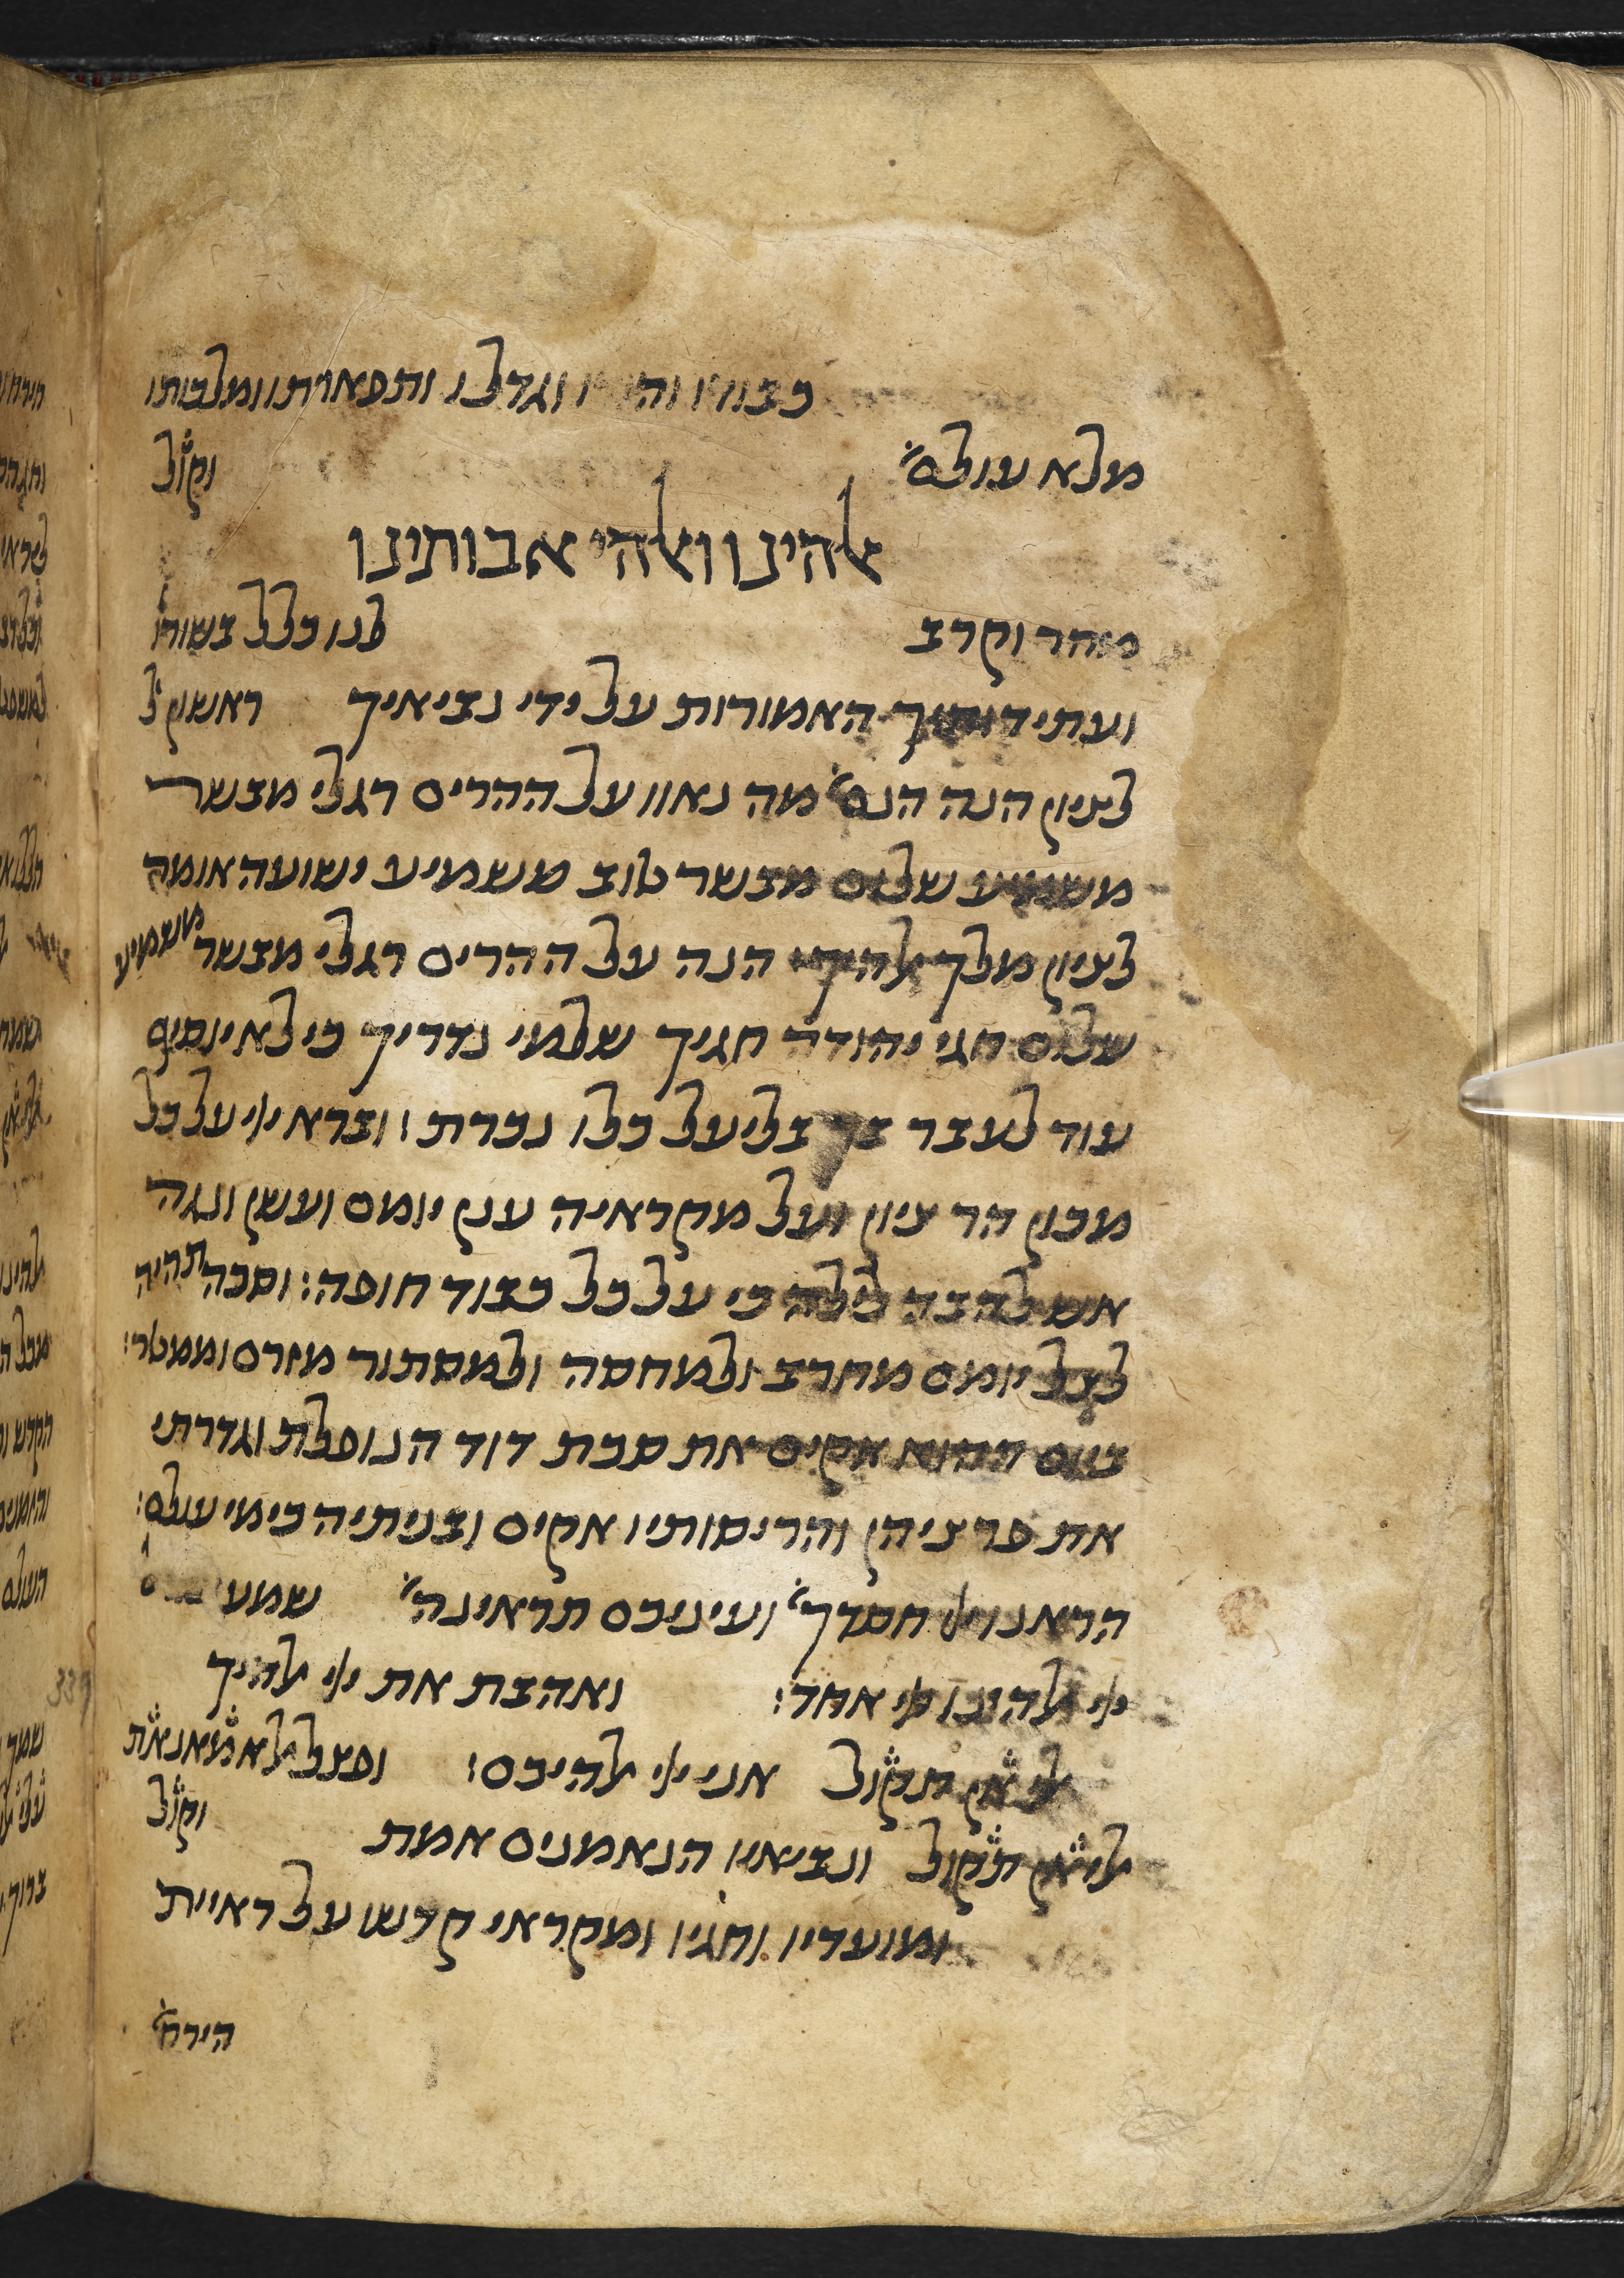 כבודו והודו וגדלו ותפארתו ומלכותו
מלא עולם׳ וקול׳
אלהינו ואלהי אבותינו
מהר וקרב לנו כלל בשורו׳
ועתידותיך האמורות על ידי נביאיך ראשון ל׳
לציון הנה הנם׳ מה נאוו על ההרים רגלי מבשר
משמיע שלום מבשר טוב משמיע ישועה אומר
לציון מלך אלהיך׳ הנה על ההרים רגלי מבשר משמיע
שלום חגי יהודה חגיך שלמי נדריך כי לא יוסיף
עוד לעבר בך בליעל כלו נכרת׃ וברא ייי על כל
מכון הר ציון ועל מקראיה ענן יומם ועשן ונגה
אש להבה לילה כי על כל כבוד חופה׃ וסכה תהיה
לצל יומם מחרב ולמחסה ולמסתור מזרם וממטר׃
ביום ההוא אקים את סכת דוד הנופלת וגדרתי
את פרציהן והריסותיו אקים ובניתיה כימי עולם׃
הראנו ייי חסדך׳ ועיניכם תראינה׳ שמע
ייי אלהינו ייי אחד׃ ואהבת את ייי אלהיך
אלי׳ אן תקול אני ייי אלהיכם׃ ופצל אלאמאנאת
אלי אן תקול ונביאיו הנאמנים אמת וקול
ומועדיו וחגיו ומקראי קדשו על ראיית
הירח׳